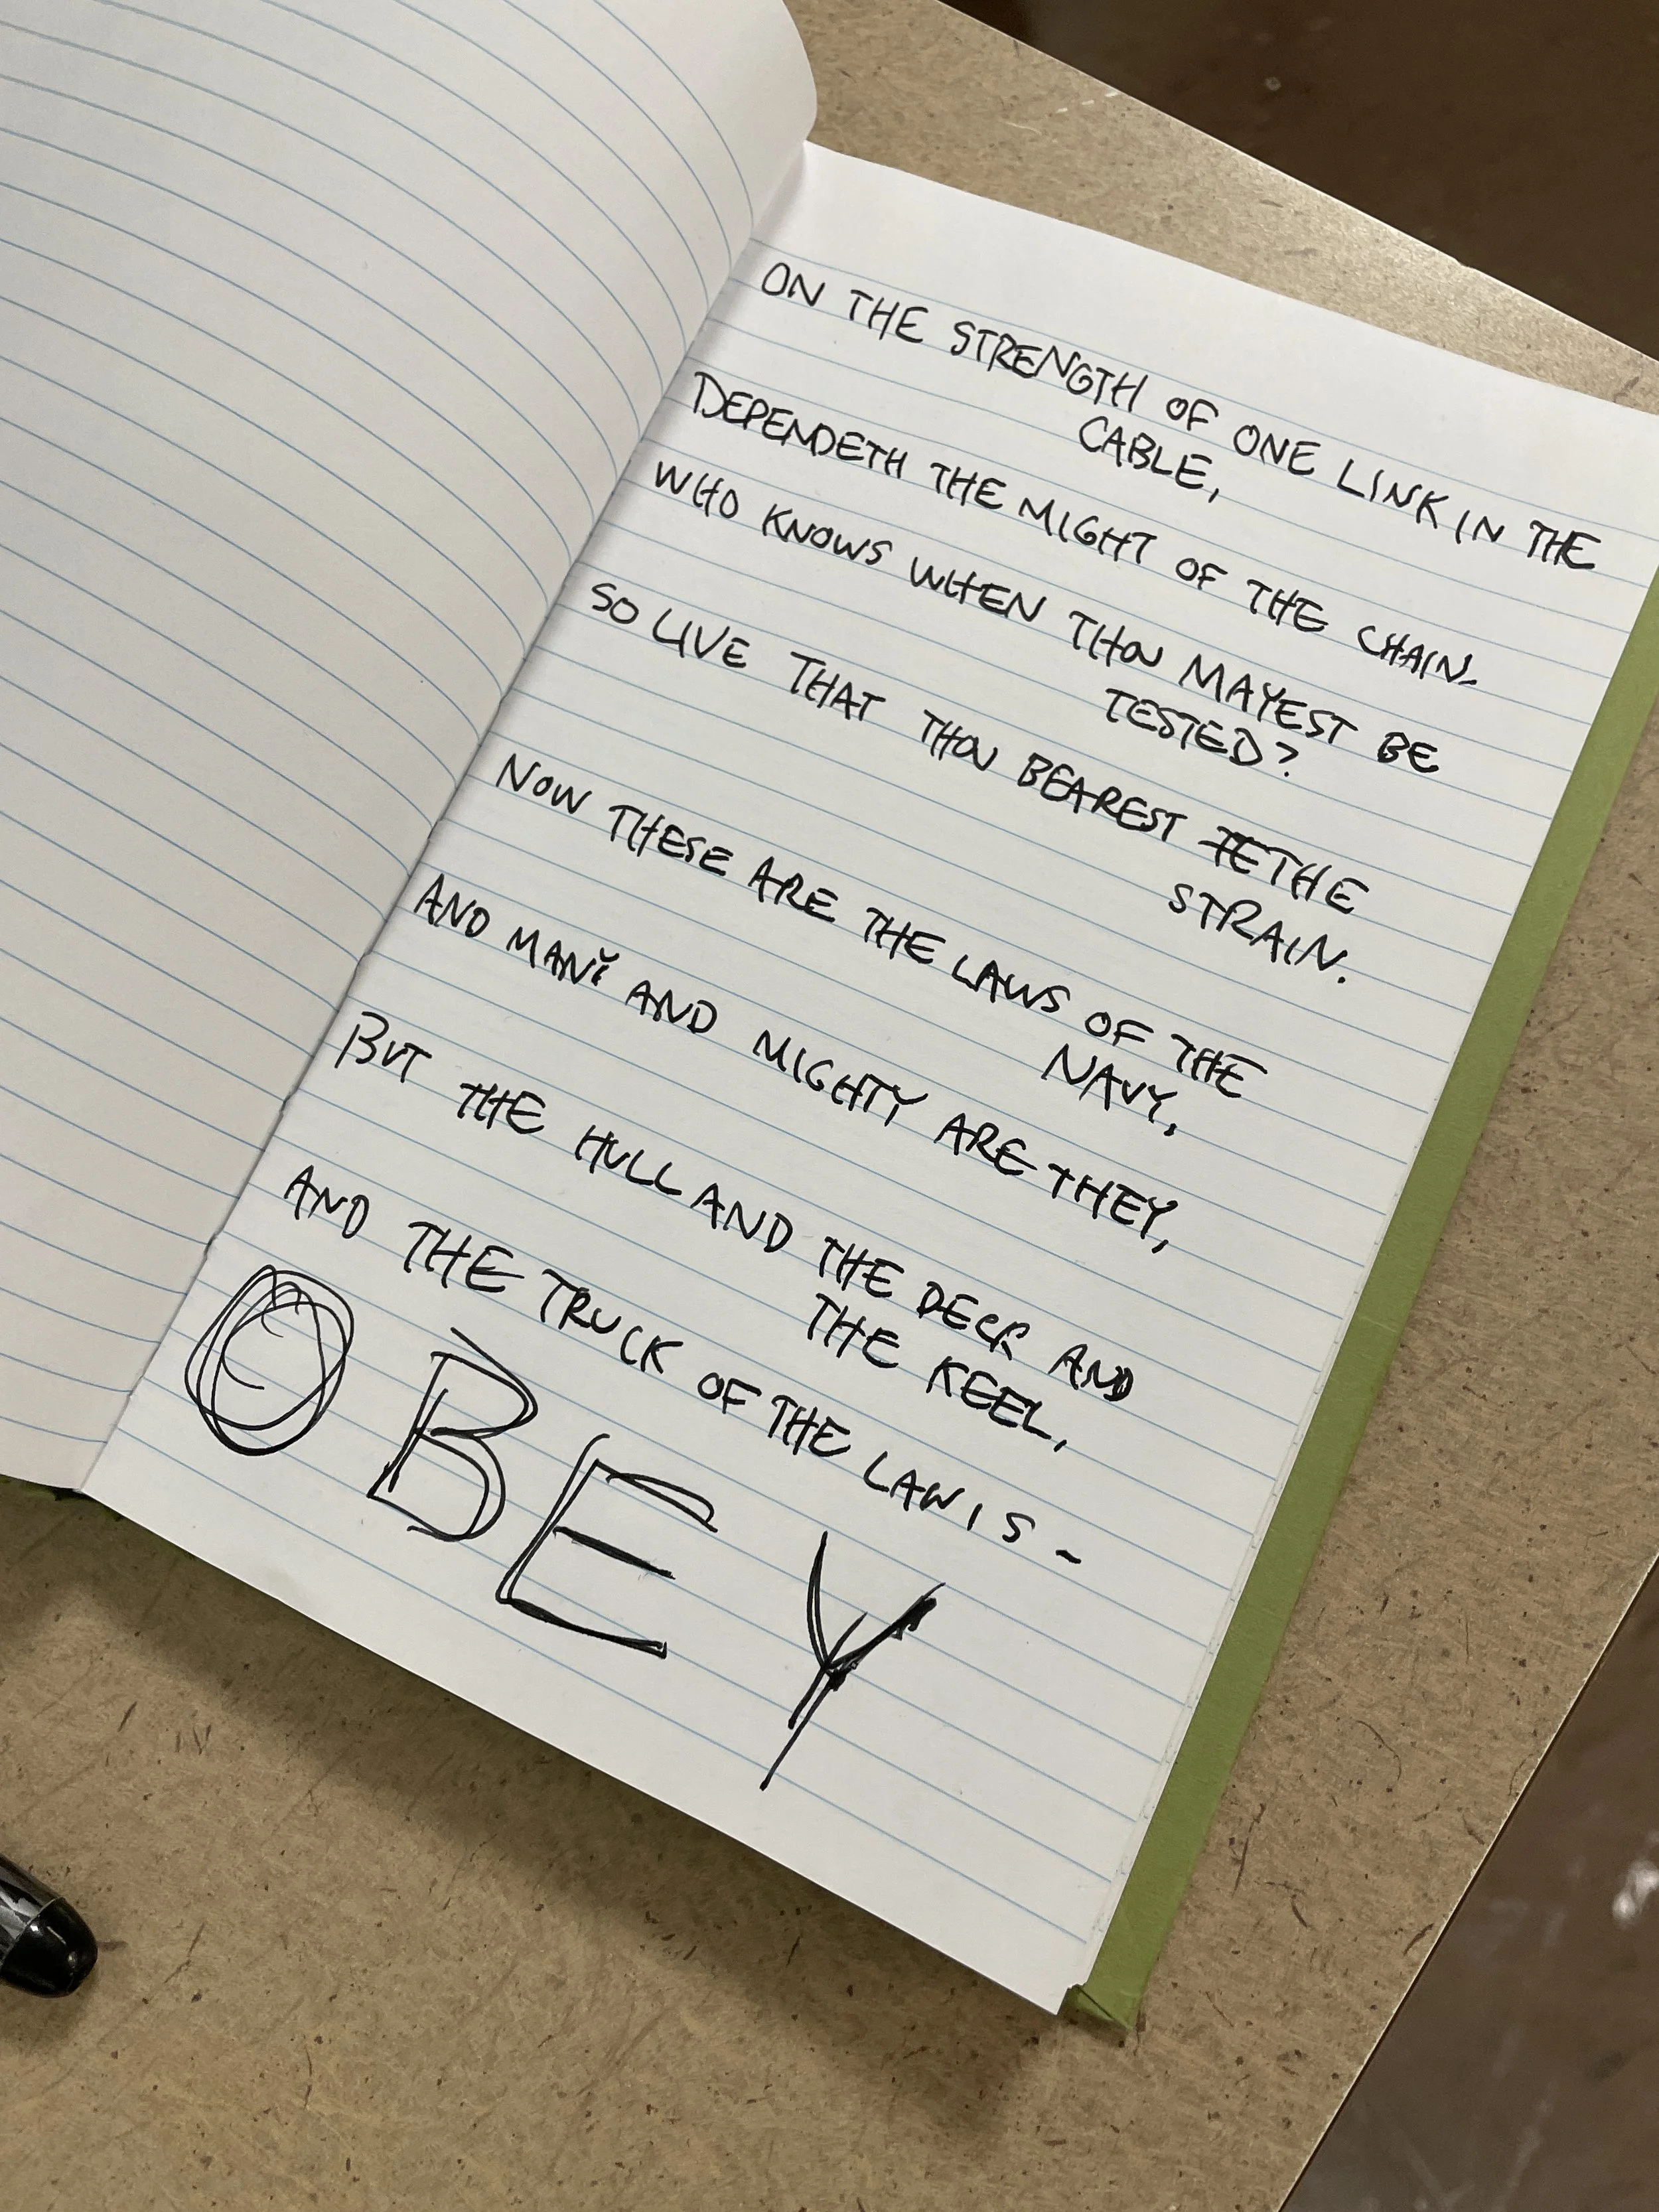 ON THE STRENGTH OF ONE LINK IN THE
CABLE,
DEPENDETH THE MIGHT OF THE CHAIN-
WHO KNOWS WHEN THOU MAYEST BE
TESTED?
SO LIVE THAT THOU BEAREST THE
STRAIN.
NOW THESE ARE THE LAWS OF THE
NAVY,
AND MANY AND MIGHTY ARE THEY,
BUT THE HULL AND THE DECK AND
THE KEEL,
AND THE TRUCK OF THE LAW IS -
OBEY